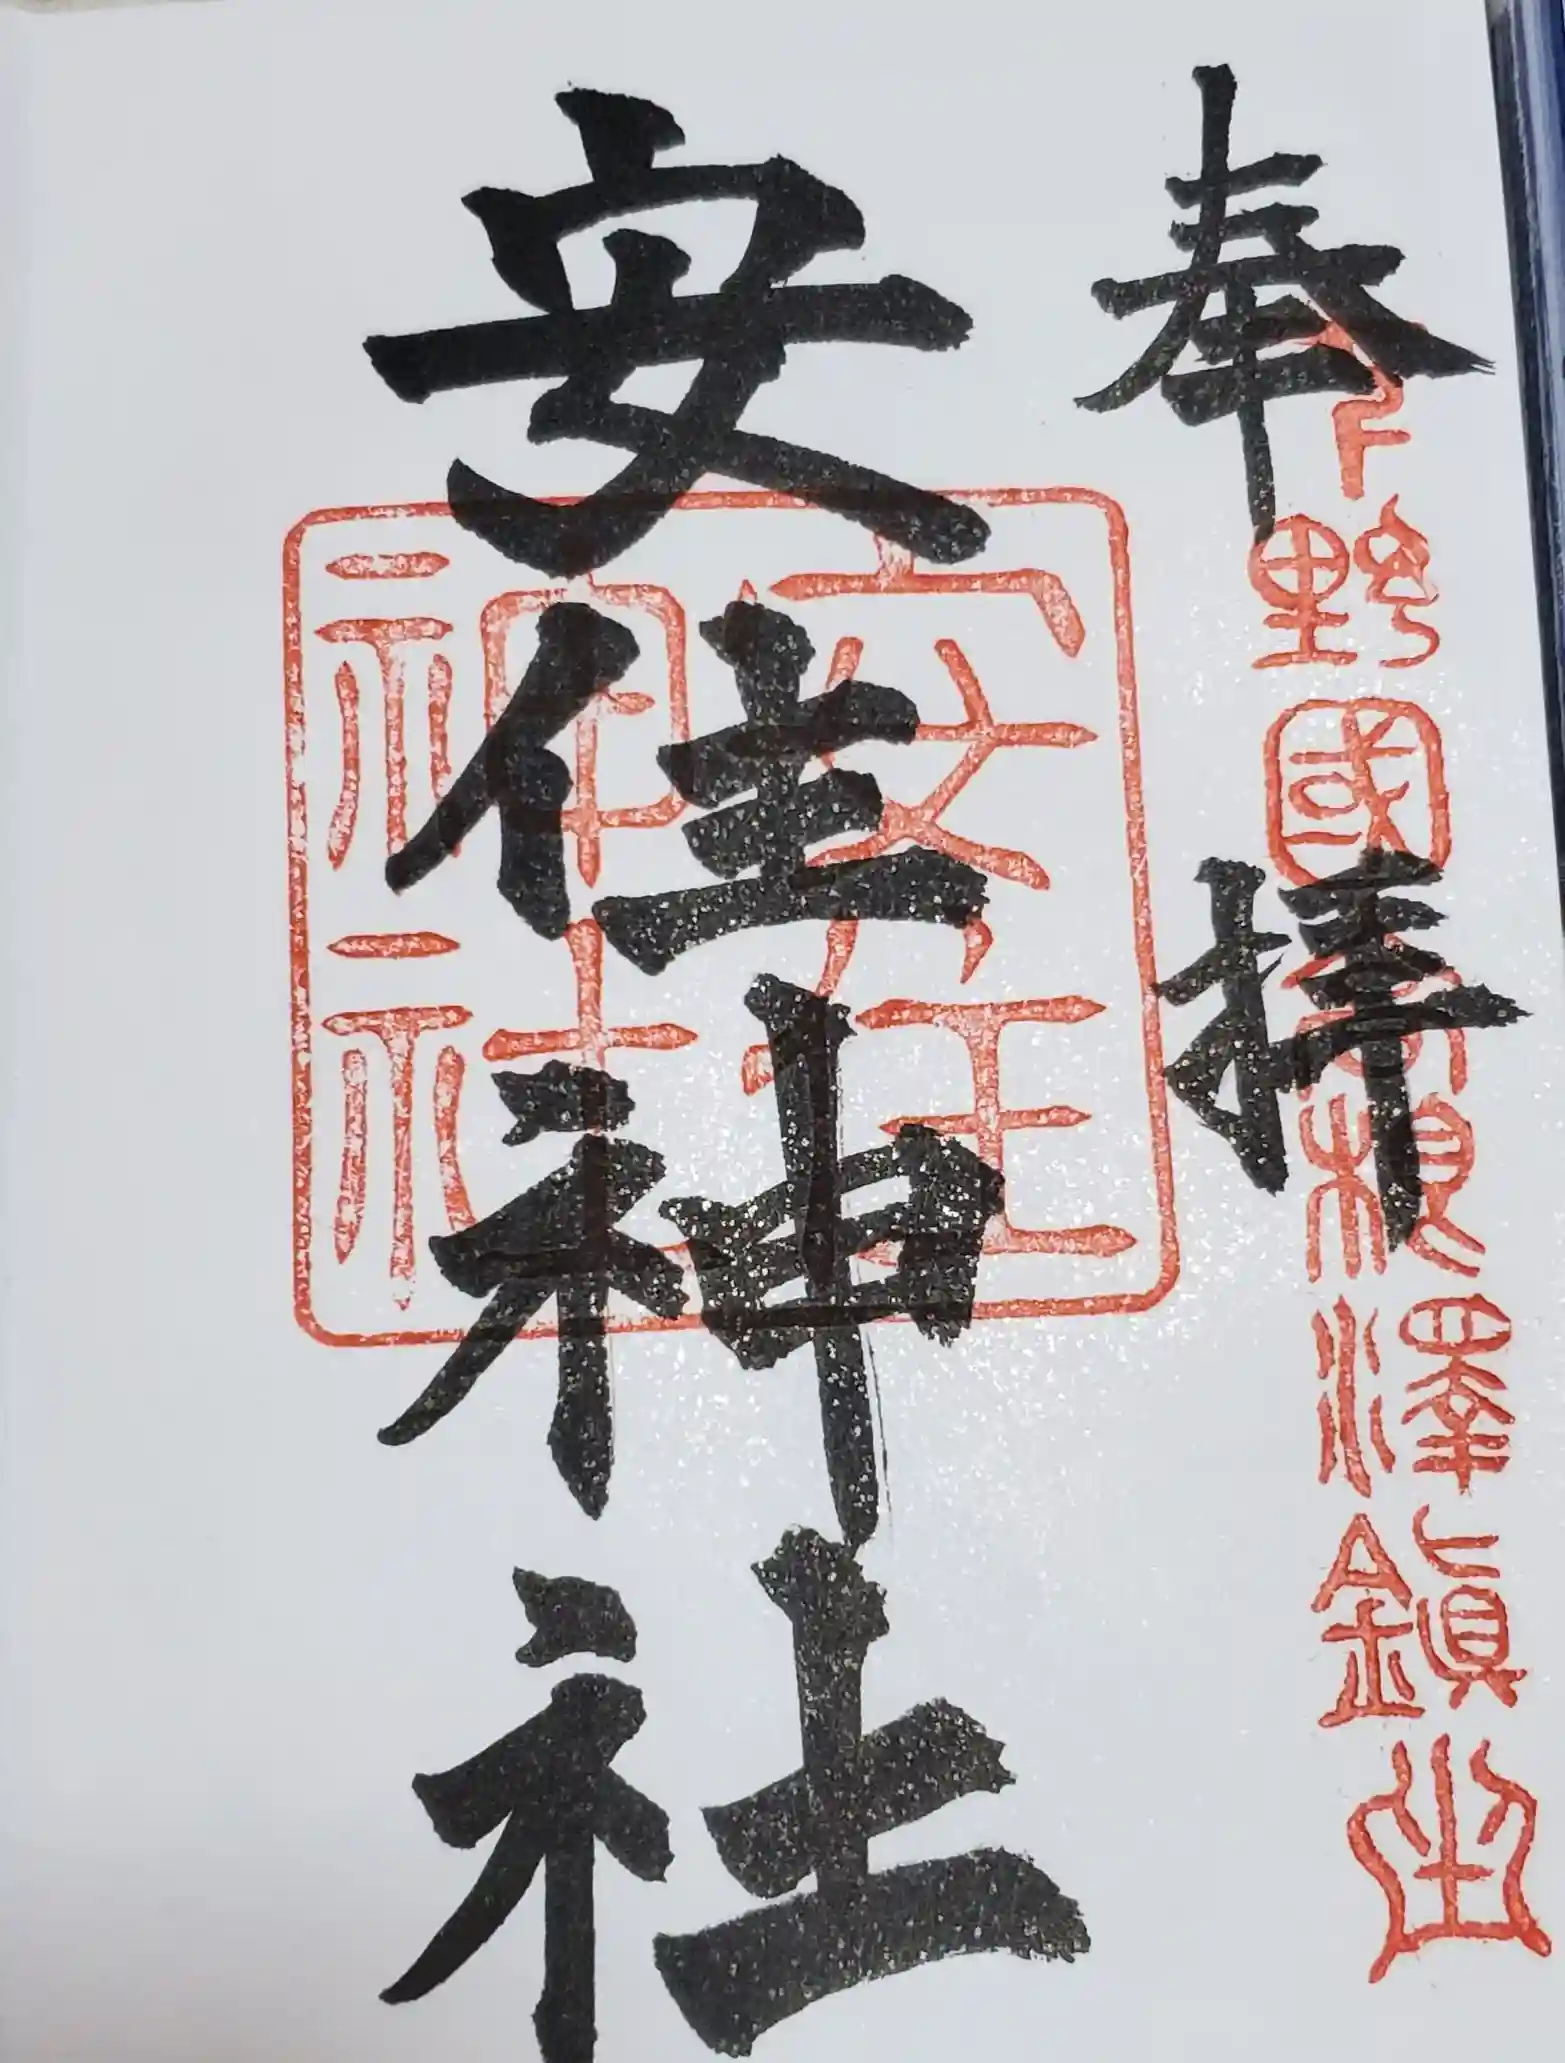 奉拝
下野國高根澤鎮座
安住神社
安住
神社